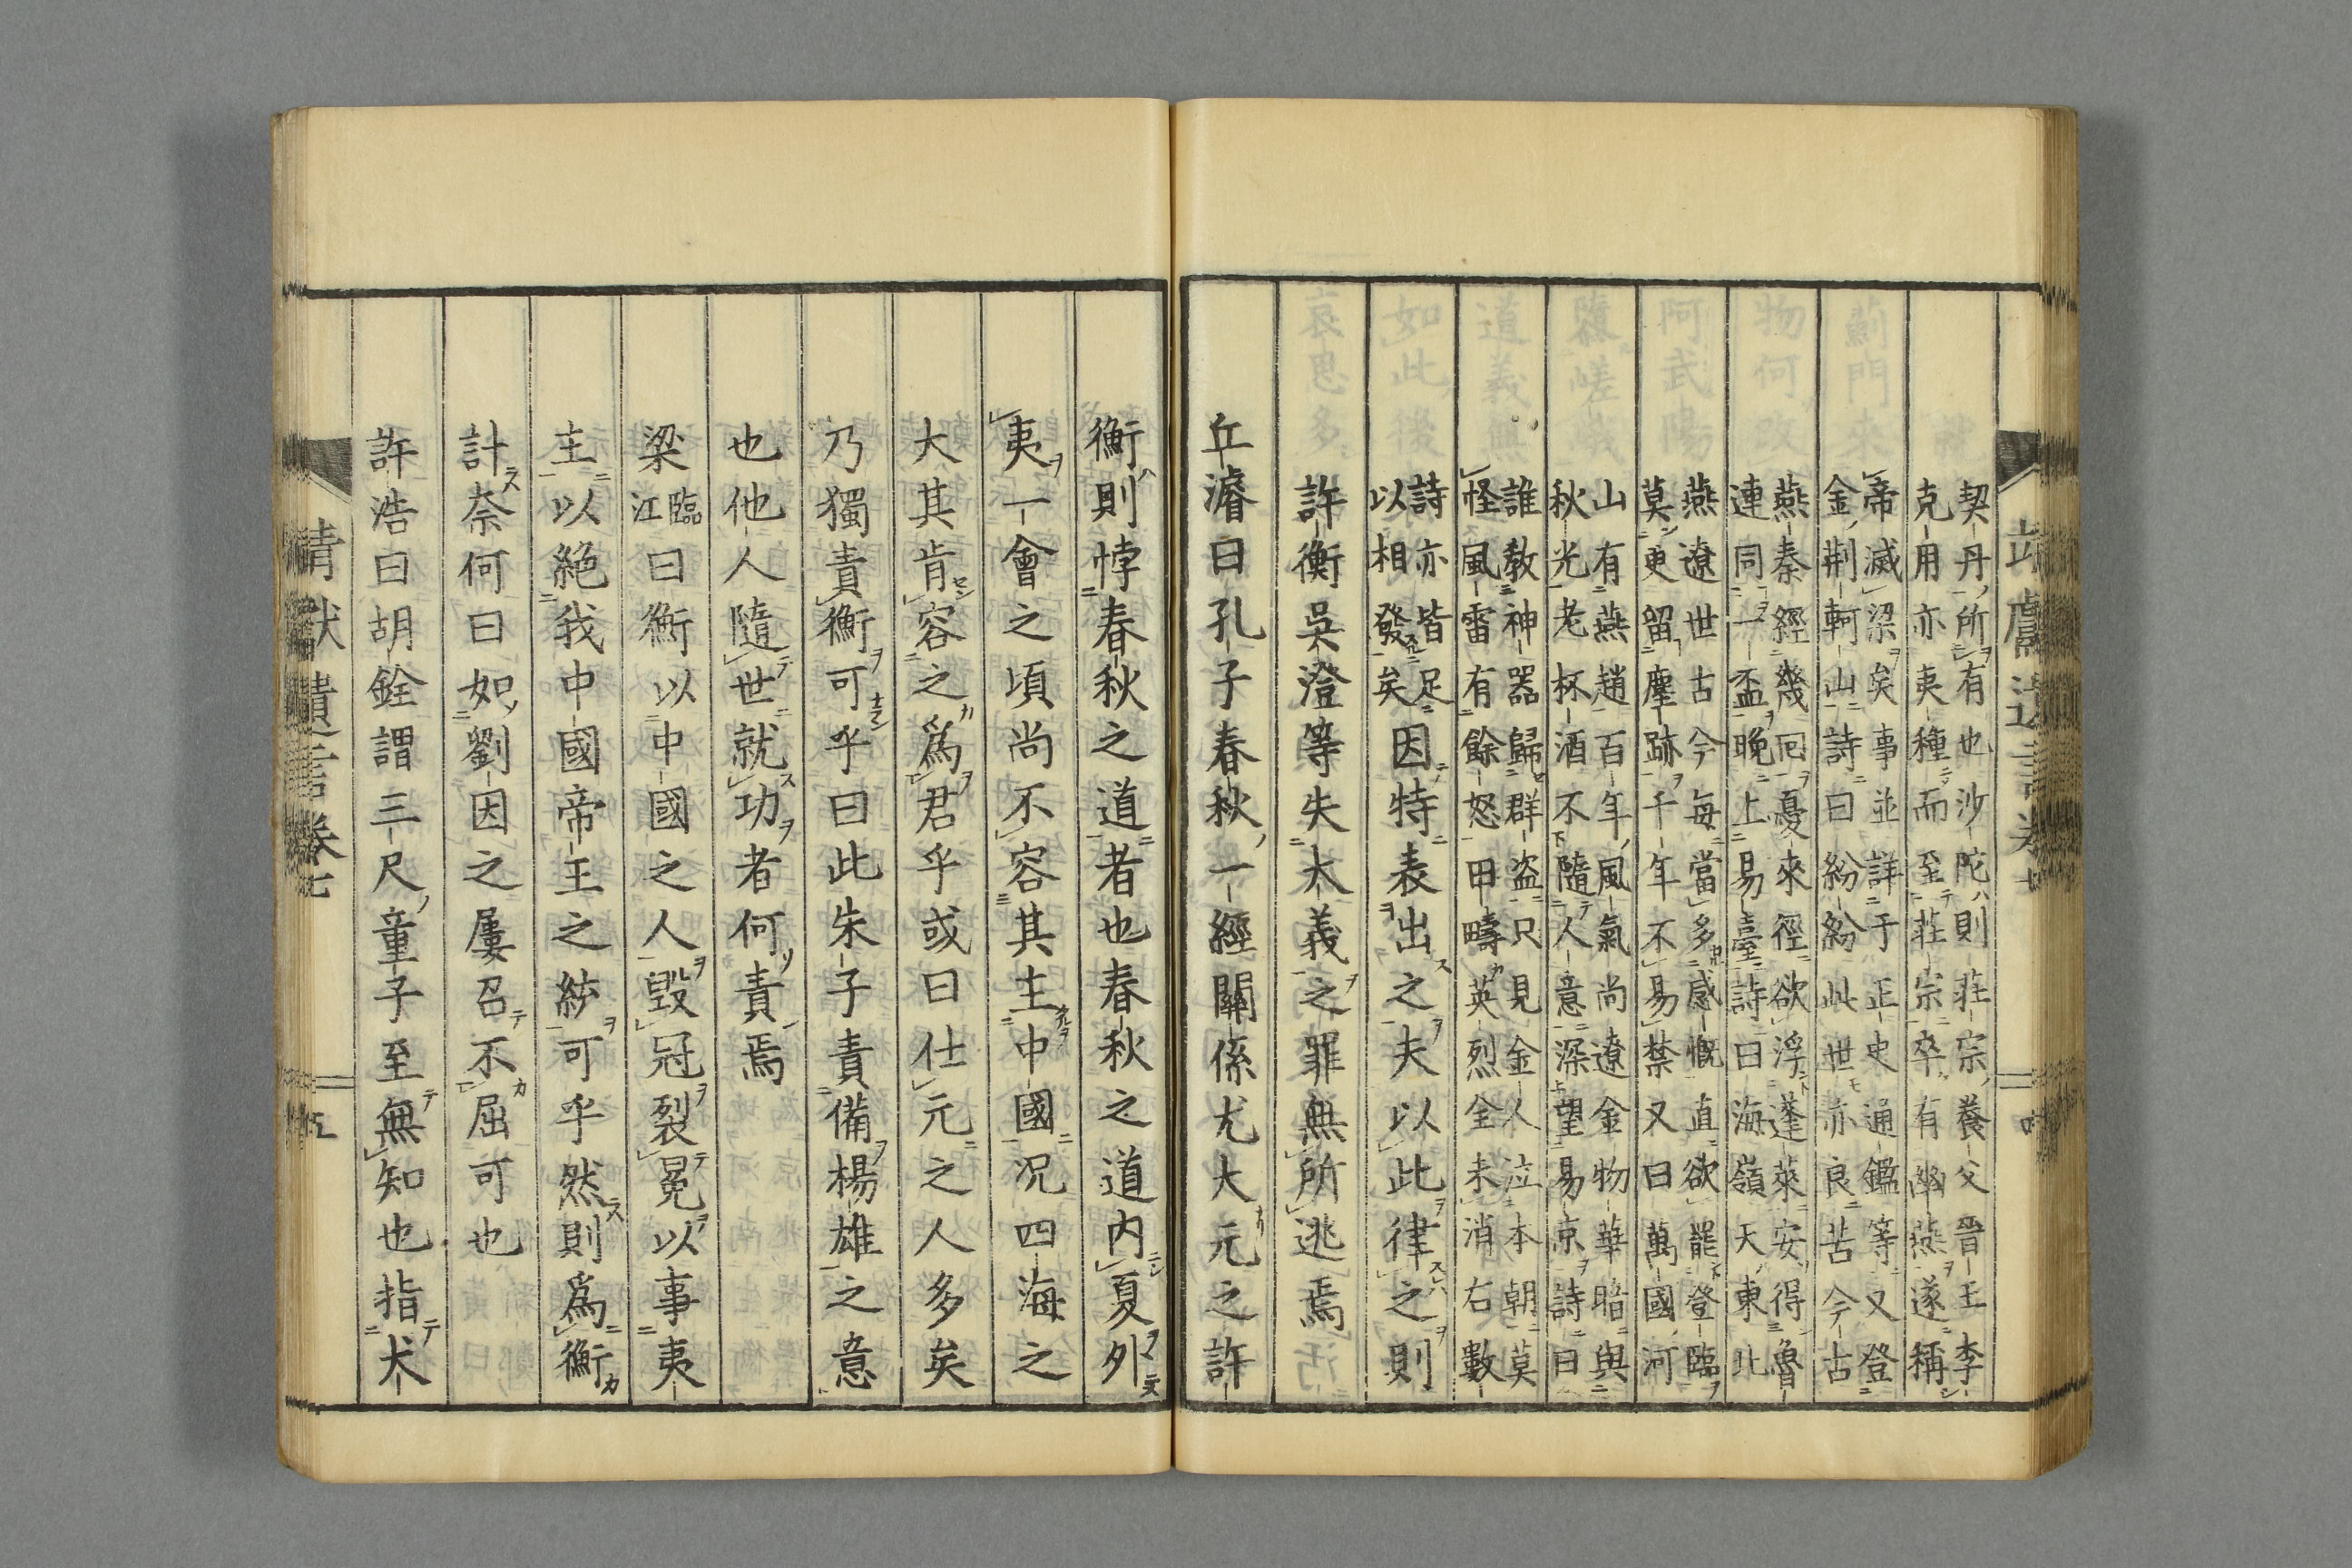 契丹所有也沙陀則莊宗養父晉王李
克用亦夷種而至莊宗卒有幽燕遂稱
帝滅梁矣事並詳于正史通鑑等又登
金荆軻山詩曰紛紛此世亦良苦今古
燕秦經幾回憂來徑欲浮蓬萊安得魯
連同一盃晚上易臺詩曰海嶺天東北
燕遼世古今每當多感慨直欲罷登臨
莫更留塵跡千年不易禁又曰萬國河
山有燕趙百年風氣尚遼金物華暗與
秋光老杯酒不隨人意深望易京詩曰
誰教神器歸群盗只見金人泣本朝莫
怪風雷有餘怒田疇英烈全未消右數
詩亦皆足
以相發矣因特表出之夫以此律之則
許衡吳澄等失大義之罪無所逃焉
丘濬曰孔子春秋一經關係尤大元之許
衡則悖春秋之道者也春秋之道内夏外
夷一會之頃尚不容其主中國况四海之
大其肯容之爲君乎或曰仕元之人多矣
乃獨責衡可乎曰此朱子責備楊雄之意
也他人隨世就功者何責焉
梁臨江曰衡以中國之人毀冠裂冕以事夷
主以絶我中國帝王之統可乎然則爲衡
計奈何曰如劉因之屢召不屈可也
許浩曰胡銓謂三尺童子至無知也指犬
靖獻遺言卷七
五